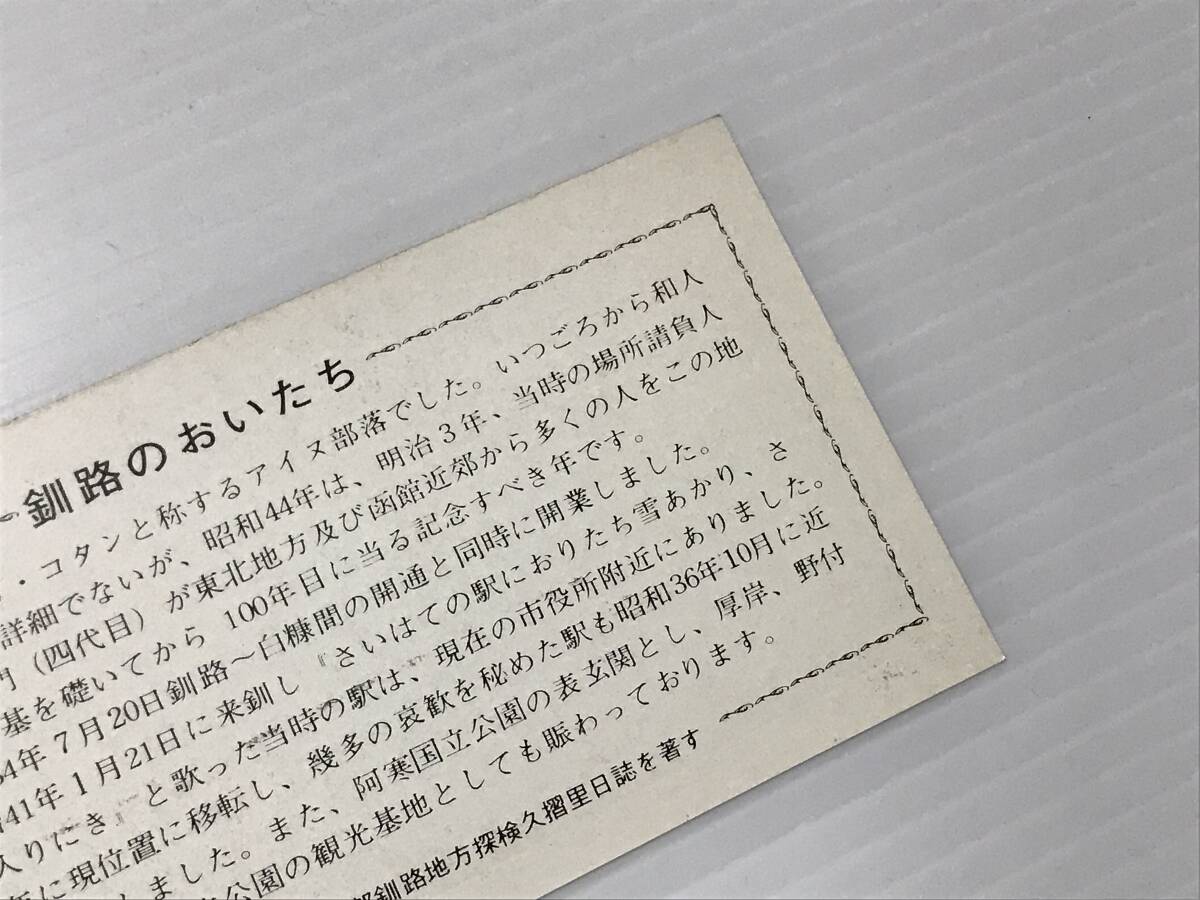 釧路のおいたち
・コタンと称するアイヌ部落でした。いつごろから和人
詳細でないが、昭和44年は、明治3年、当時の場所請負人
門(四代目)が東北地方及び函館近郊から多くの人をこの地
基を礎いてから 100年目に当る記念すべき年です。
34年7月20日釧路〜白糠間の開通と同時に開業しました。
41年1月21日に来釧し『さいはての駅におりたち雪あかり、さ
入りにき』と歌った当時の駅は、現在の市役所附近にありました。
年に現位置に移転し、幾多の哀歓を秘めた駅も昭和36年10月に近
しました。また、阿寒国立公園の表玄関とし、厚岸、野付
公園の観光基地としても賑わっております。
釧路地方探検久摺里日誌を著す